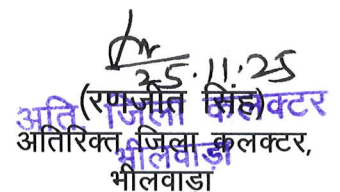 25.11.25
(रणजीत सिंह)
अति जिला कलक्टर
अतिरिक्त जिला कलक्टर,
भीलवाड़ा
भीलवाडा